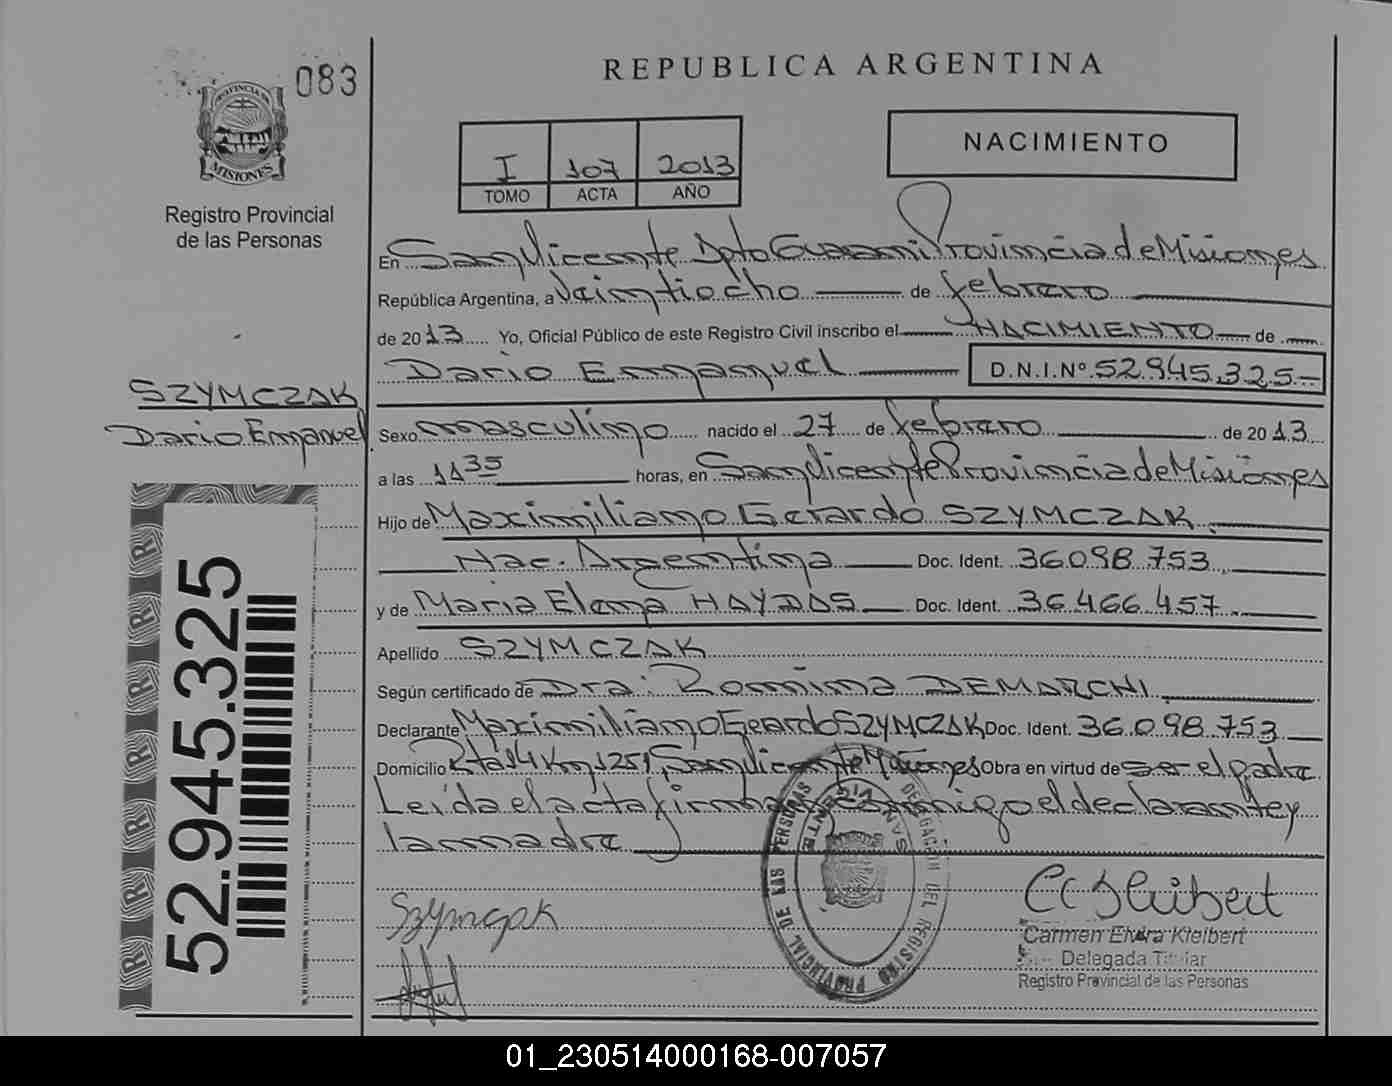 083
REPUBLICA ARGENTINA
PROVINCIA DE
MISIONES
Registro Provincial
de las Personas
I 107 2013
TOMO ACTA AÑO
NACIMIENTO
En San Vicente Dpto Guarani Provincia de Misiones
República Argentina, a Veintiocho de febrero
de 2013 Yo, Oficial Público de este Registro Civil inscribo el NACIMIENTO de
Dario Emanuel D.N.I.Nº 52.945.325
SZYMCZAK
Dario Emanuel
Sexo masculino nacido el 27 de febrero de 2013
a las 11 35 horas, en San Vicente Provincia de Misiones
Hijo de Maximiliano Gerardo SZYMCZAK
Nac. Argentina Doc. Ident. 36.098.753
y de Maria Elena HAYDAS Doc. Ident. 36.466.457
Apellido SZYMCZAK
Según certificado de Dra. Romina DEMARCHI
Declarante Maximiliano Gerardo SZYMCZAK Doc. Ident. 36.098.753
Domicilio Rta 14 Km 1251, San Vicente Misiones Obra en virtud de ser el padre
Leída el acta firman conmigo el declarante y
la madre
52.945.325
Szymczak
DELEGACION DEL REGISTRO PROVINCIAL DE LAS PERSONAS
SAN VICENTE
Carmen Elvira Kleibert
Delegada Titular
Registro Provincial de las Personas
01_230514000168-007057